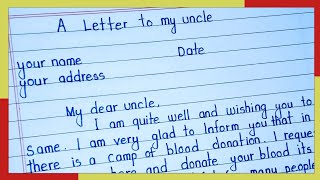 A Letter to my uncle
your name Date
your address
My dear uncle,
I am quite well and wishing you to
same. I am very glad to Inform you that in
there is a camp of blood donation. I reques
here and donate your blood its
many people